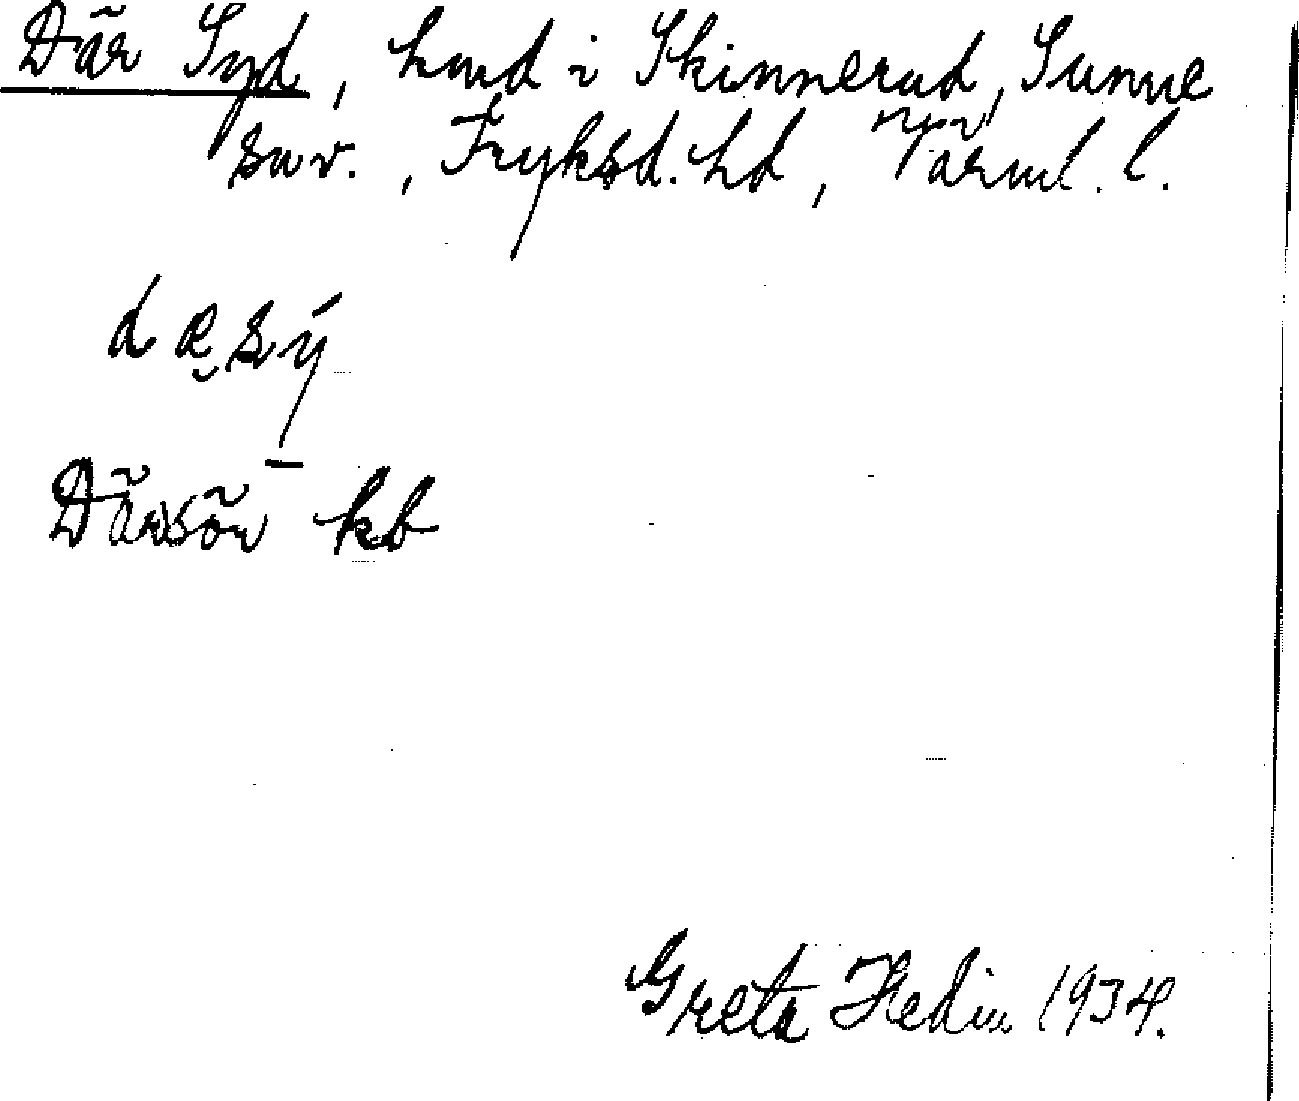 Där Syd, hmd i Skinnerud, Sunne
sn v., Fryksd. hd, Värml. l.
d ę s ý
Därsör kb
Greta Hedin 1934.